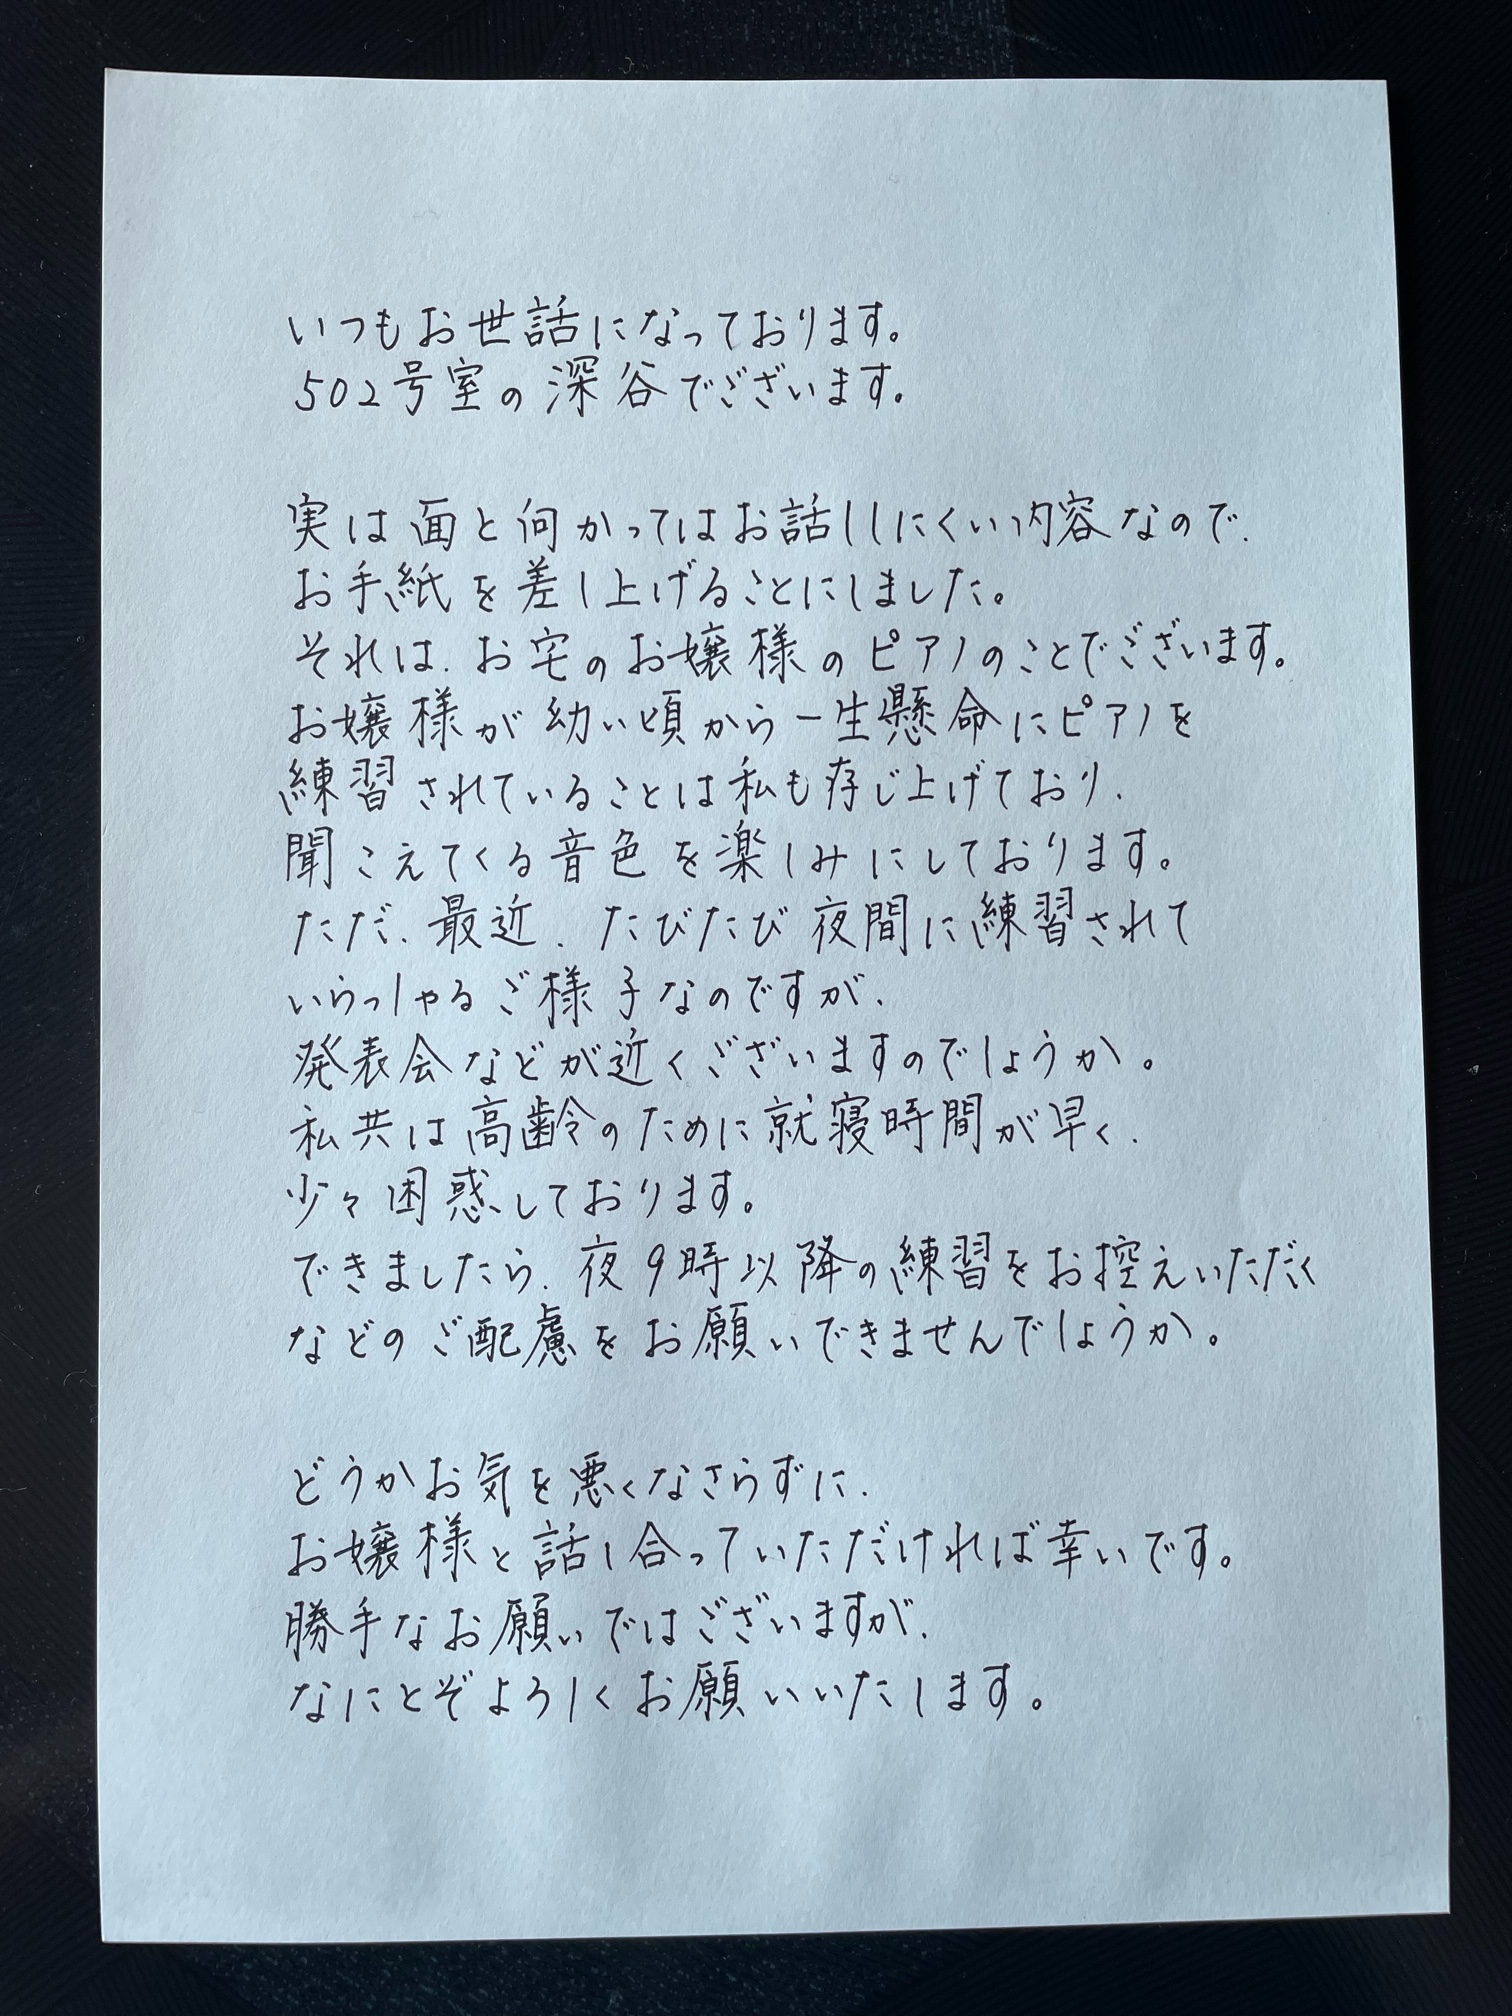 いつもお世話になっております。
502号室の深谷でございます。
実は面と向かってはお話ししにくい内容なので、
お手紙を差し上げることにしました。
それは、お宅のお嬢様のピアノのことでございます。
お嬢様が幼い頃から一生懸命にピアノを
練習されていることは私も存じ上げており、
聞こえてくる音色を楽しみにしております。
ただ、最近、たびたび夜間に練習されて
いらっしゃるご様子なのですが、
発表会などが近くございますのでしょうか。
私共は高齢のために就寝時間が早く、
少々困惑しております。
できましたら、夜9時以降の練習をお控えいただく
などのご配慮をお願いできませんでしょうか。
どうかお気を悪くなさらずに、
お嬢様と話し合っていただければ幸いです。
勝手なお願いではございますが、
なにとぞよろしくお願いいたします。